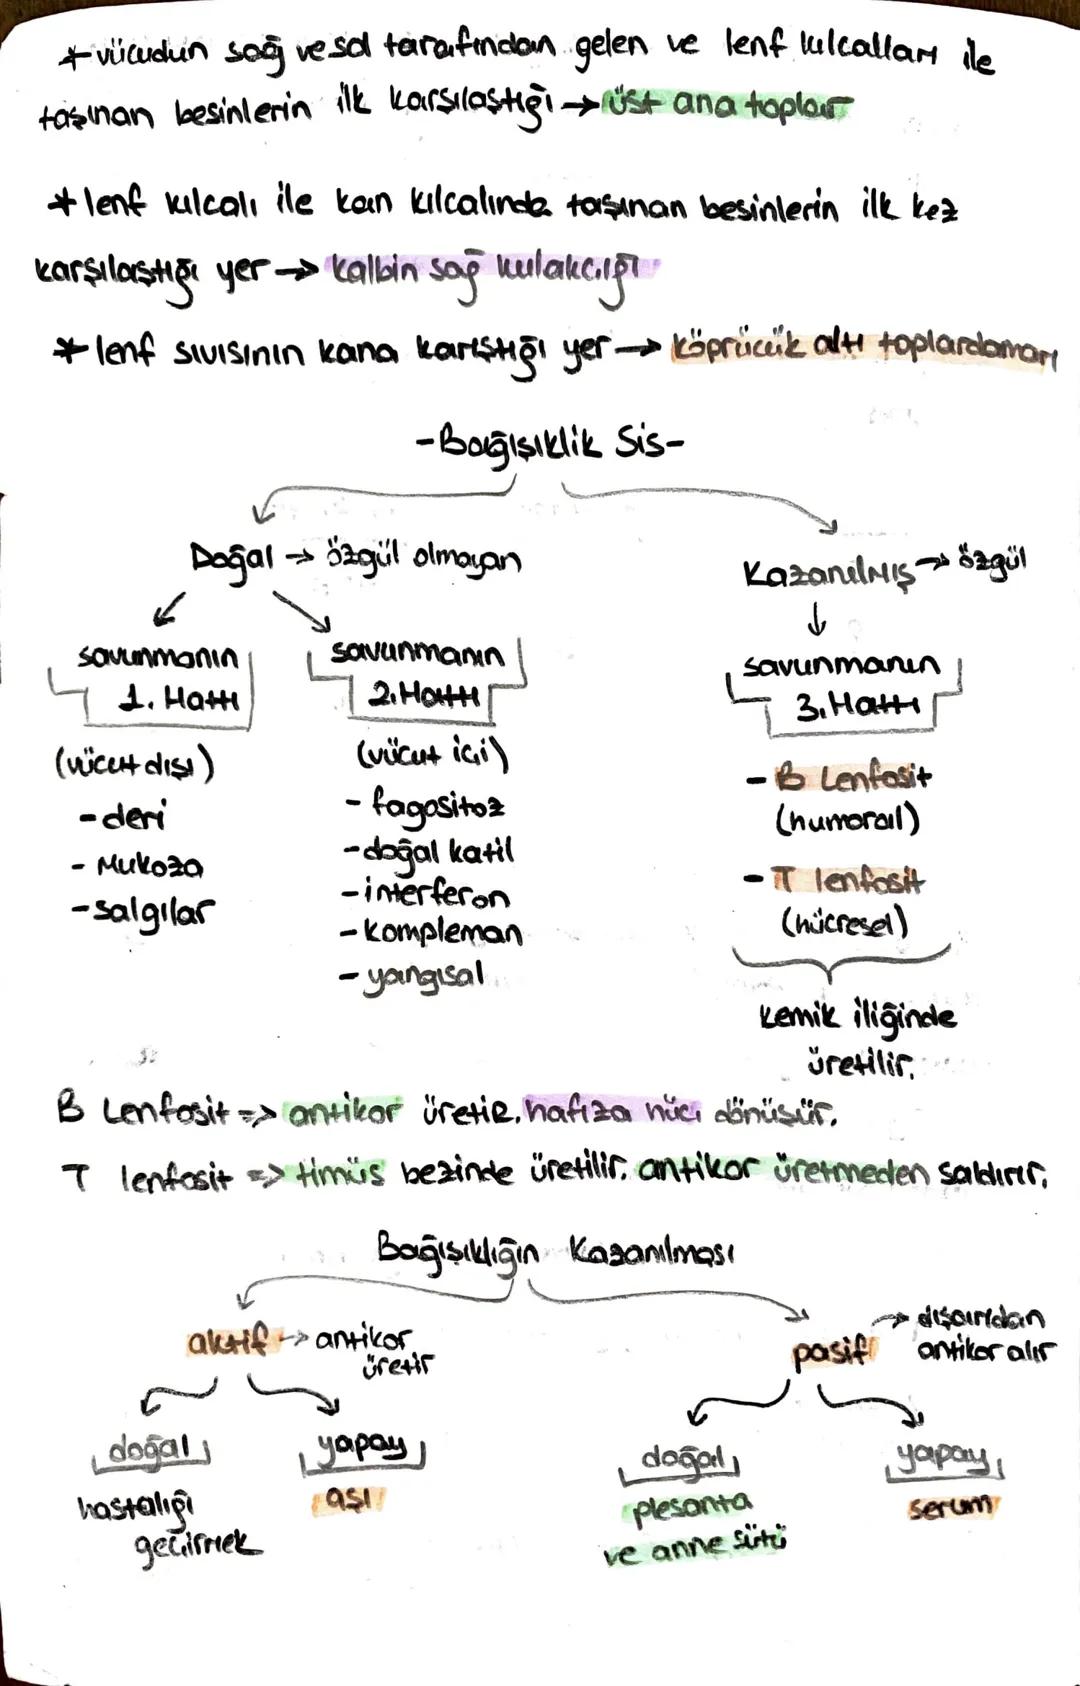 * vücudun sağ ve sol tarafından gelen ve lenf kılcalları ile
taşınan besinlerin ilk karşılaştığı → üst ana toplar
* lenf kılcalı ile kan kılcalında taşınan besinlerin ilk kez
karşılaştığı yer → kalbin sağ kulakcığı
* lenf sıvısının kana karıştığı yer → köprücük altı toplardamarı
-Bağışıklik Sis-
Doğal → özgül olmayan
Kazanılmış → özgül
savunmanın
1. Hattı
(vücut dışı)
- deri
- Mukoza
- salgılar
savunmanın
2. Hattı
(vücut içi)
- fagositoz
- doğal katil
- interferon
- kompleman
- yangısal
savunmanın
3. Hattı
- B Lenfosit
(humoral)
- T lenfosit
(hücresel)
kemik iliğinde
üretilir.
B Lenfosit => antikor üretir. hafıza hüc. dönüşür.
T lenfosit => timüs bezinde üretilir. antikor üretmeden saldırır.
Bağışıklığın Kazanılması
aktif → antikor
üretir
pasif → dışarıdan
antikor alır
doğal
hastalığı
geçirmek
yapay
aşı
doğal
plesanta
ve anne sütü
yapay
serum